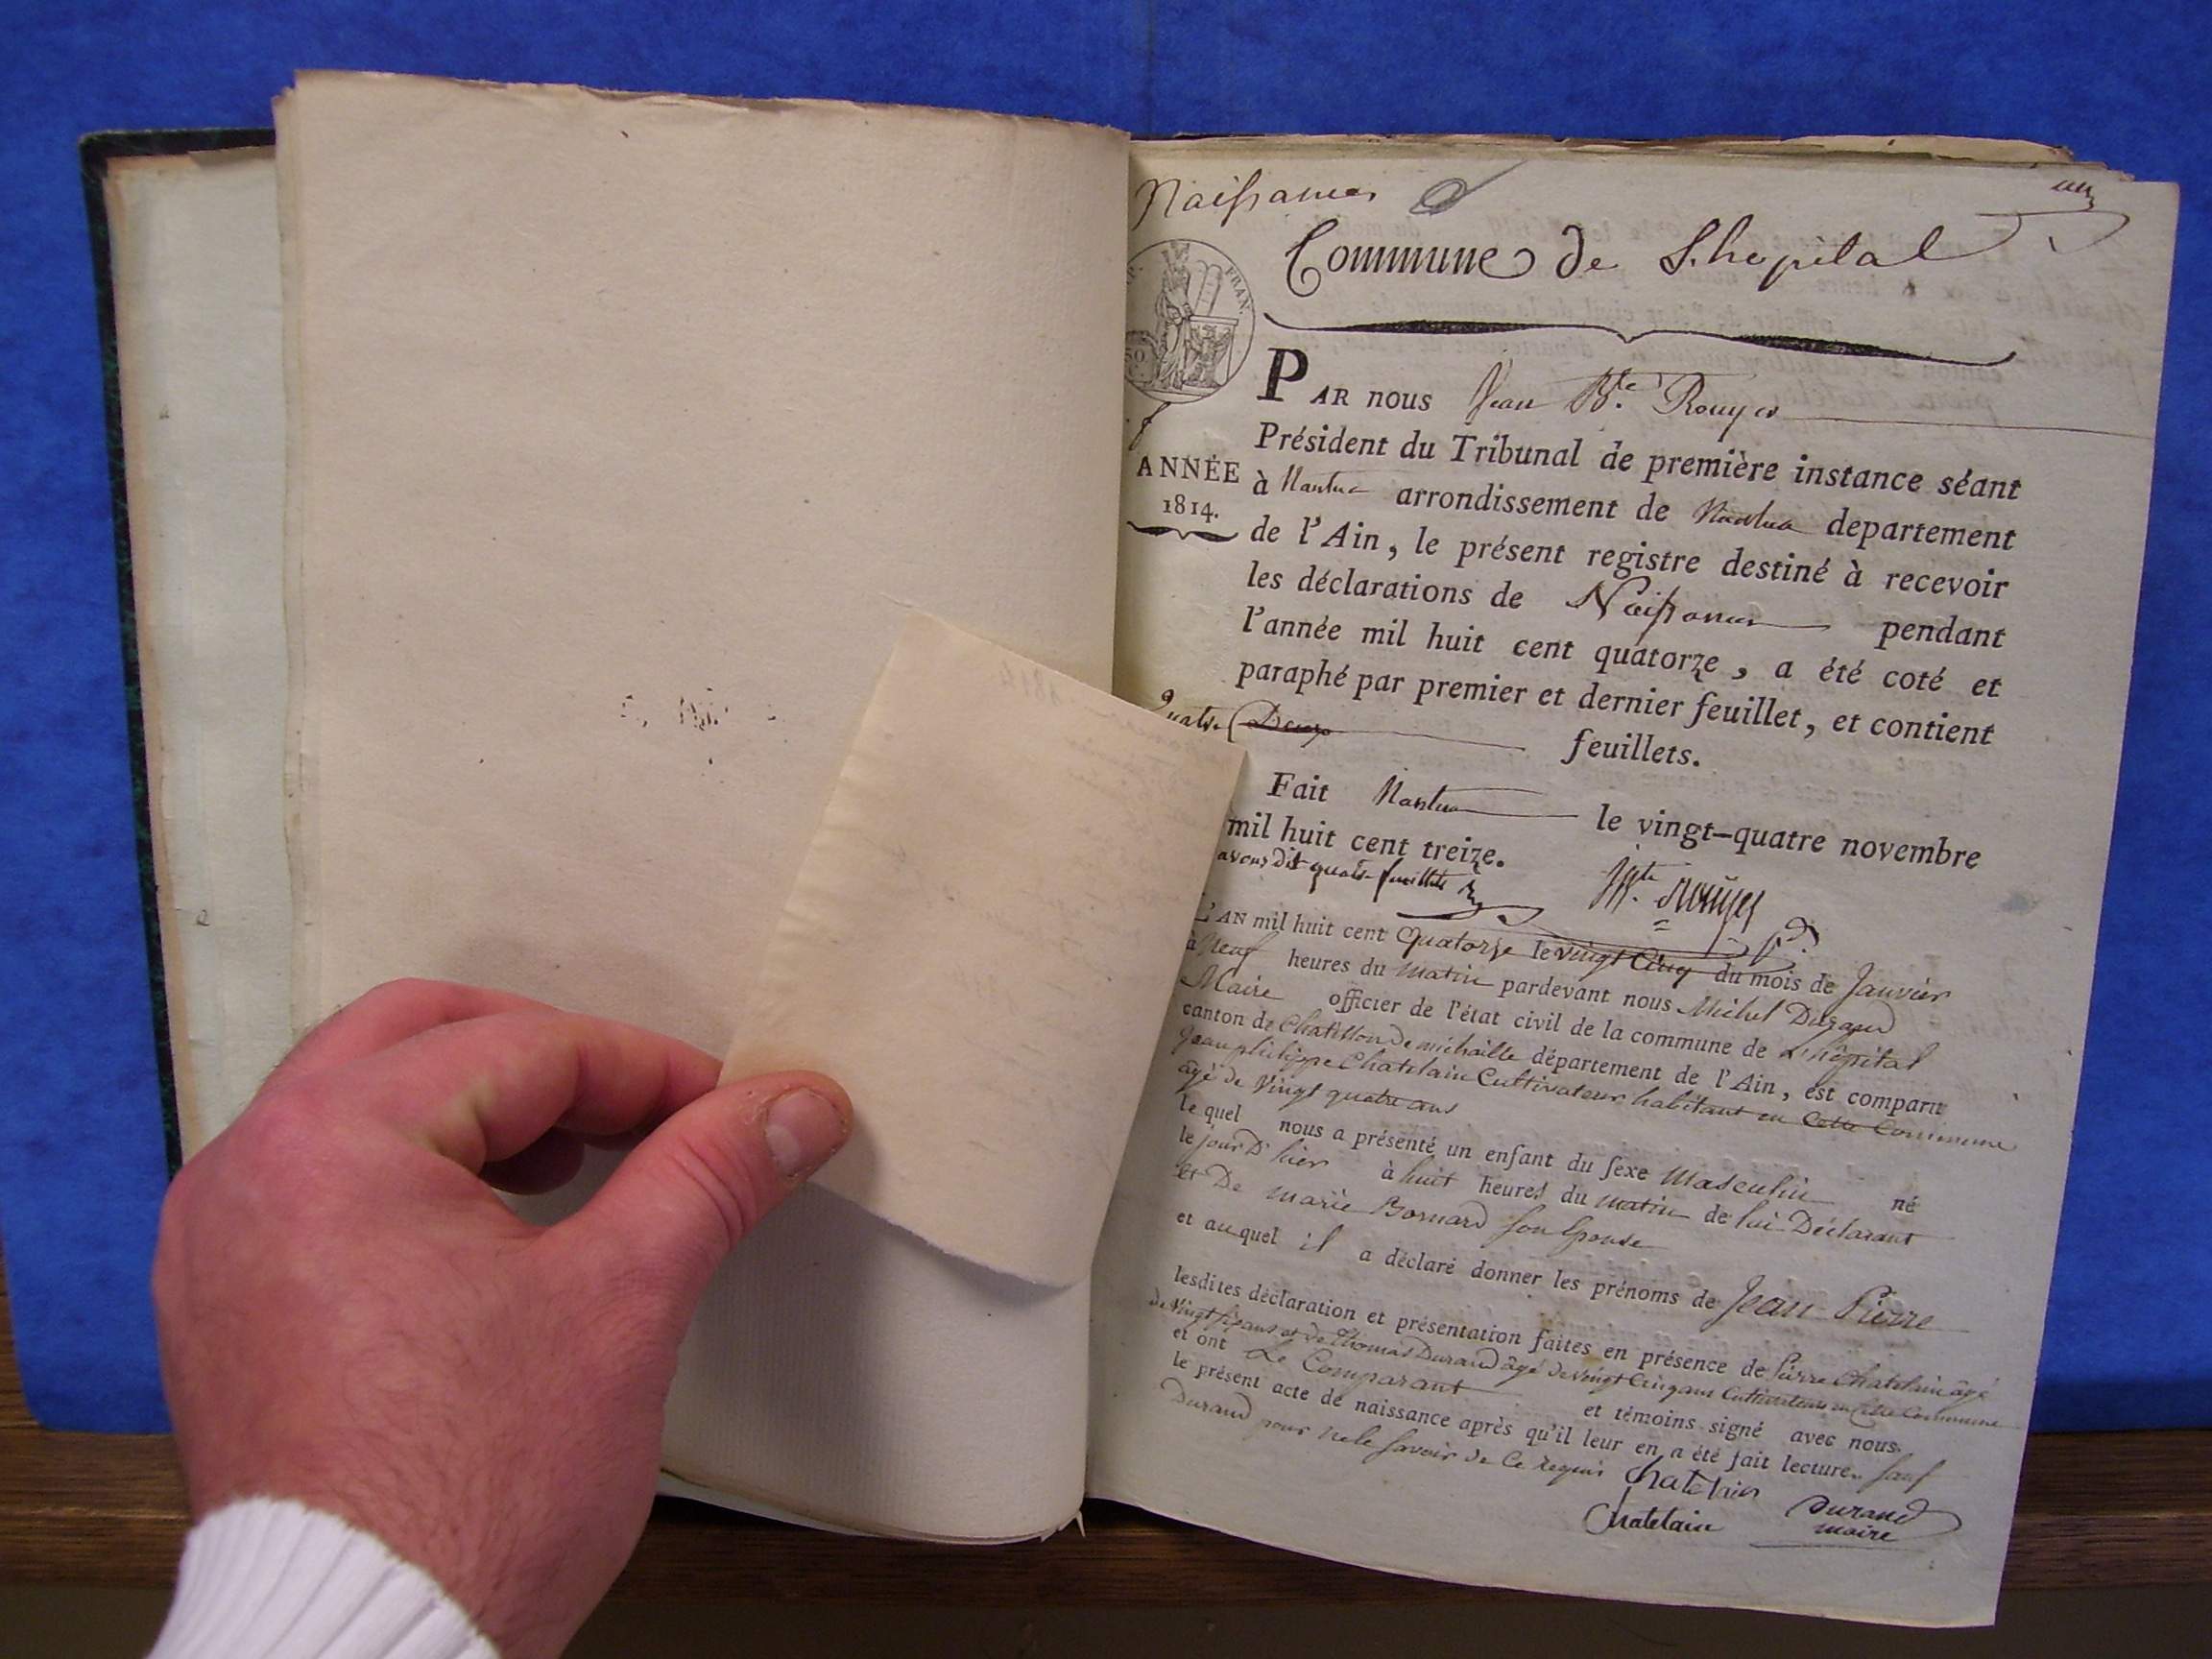 Naissances
un
Commune de L'hopital
FRAN.
50
PAR nous Jean Bte. Rouyer
Président du Tribunal de première instance séant
ANNÉE
1814.
à Nantua arrondissement de Nantua departement
de l'Ain, le présent registre destiné à recevoir
les déclarations de Naissances pendant
l'année mil huit cent quatorze, a été coté et
paraphé par premier et dernier feuillet, et contient
quatre Deux feuillets.
Fait Nantua le vingt-quatre novembre
mil huit cent treize.
avons dit quatre feuillets
Bte. Rouyer
L'AN mil huit cent quatorze le vingt Cinq du mois de Janvier
à Neuf heures du matin pardevant nous Michel Durand
Maire officier de l'état civil de la commune de L'hôpital
canton de Chatillon de michaille département de l'Ain, est comparu
Jean philippe Chatelain Cultivateur habitant en Cette Commune
âgé de Vingt quatre ans
le quel nous a présenté un enfant du sexe Masculin né
le jour D'hier à huit heures du matin de lui Déclarant
et De marie Bornard son Epouse
et auquel il a déclaré donner les prénoms de Jean Pierre
lesdites déclaration et présentation faites en présence de Pierre Chatelain âgé
de Vingt six ans et de Thomas Durand âgé de vingt Cinq ans Cultivateurs en Cette Commune
et ont Le Comparant et témoins signé avec nous
le présent acte de naissance après qu'il leur en a été fait lecture. sauf
Durand pour ne le savoir de Ce requis
Chatelain
Chatelain Durand
maire